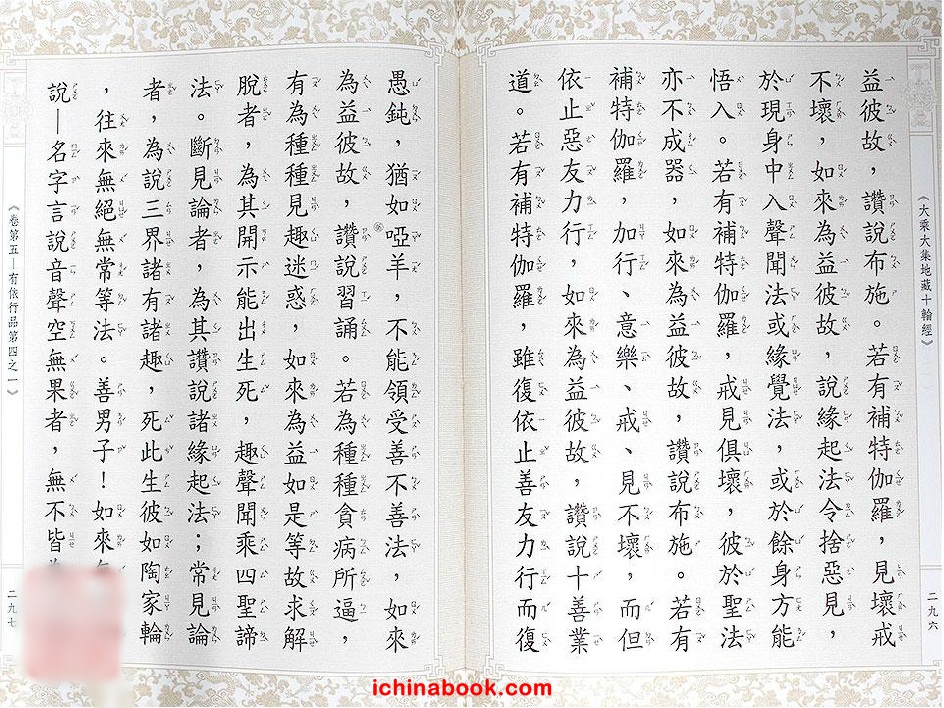 《大乘大集地藏十輪經》
二九六
益彼故，讚說布施。若有補特伽羅，見壞戒
不壞，如來為益彼故，說緣起法令捨惡見，
於現身中入聲聞法或緣覺法，或於餘身方能
悟入。若有補特伽羅，戒見俱壞，彼於聖法
亦不成器，如來為益彼故，讚說布施。若有
補特伽羅，加行、意樂、戒、見不壞，而但
依止惡友力行，如來為益彼故，讚說十善業
道。若有補特伽羅，雖復依止善友力行而復
愚鈍，猶如啞羊，不能領受善不善法，如來
為益彼故，讚說習誦。若為種種貪病所逼，
有為種種見趣迷惑，如來為益如是等故求解
脫者，為其開示能出生死，趣聲聞乘四聖諦
法。斷見論者，為其讚說諸緣起法；常見論
者，為說三界諸有諸趣，死此生彼如陶家輪
，往來無絕無常等法。善男子！如來
說—名字言說音聲空無果者，無不皆
《卷第五—有依行品第四之一》
二九七
ichinabook.com